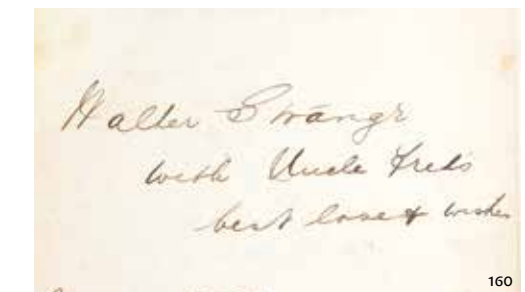 Walter
with Uncle Fred's
best love & wishes
160